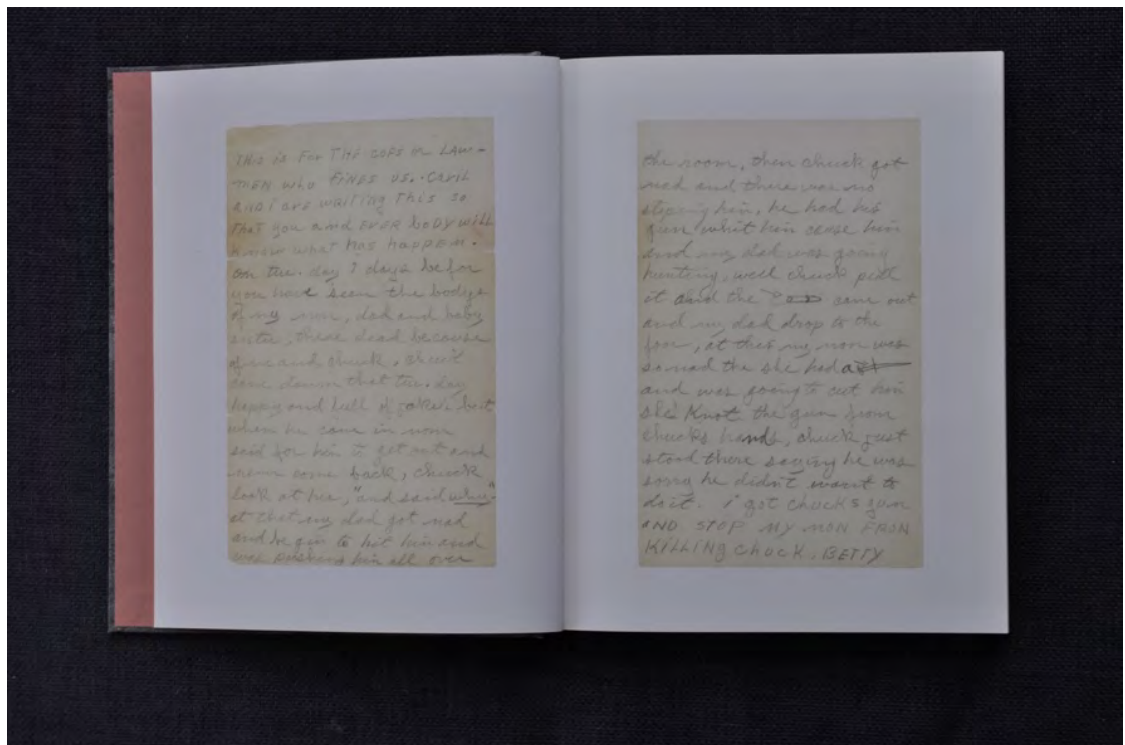 THIS is FOR THE COPS OR LAW-
MEN WHO FINDS US. CARIL
AND I ARE WRITING THIS SO
THAT you and EVER body WILL
know what has happen.
on tue. day 7 days befor
you have seen the bodys
of my mom, dad and baby
sister, there dead because
of me and chuck, chuck
came down that tue. day
happy and full of jokes but
when he came in mom
said for him to get out and
never come back, chuck
look at her, "and said why"
at that my dad got mad
and begin to hit him and
was pushing him all over
the room, then chuck got
mad and there was no
stoping him, he had his
gun whit him cause him
and my dad was going
hunting, well chuck pull
it and the came out
and my dad drop to the
foor, at this my mom was
so mad the she had a
and was going to cut him
she Knot the gun from
chucks hands, chuck just
stood there saying he was
sorry he didn't want to
do it. i got chucks gun
AND STOP MY MON FROM
KILLING chuck. BETTY